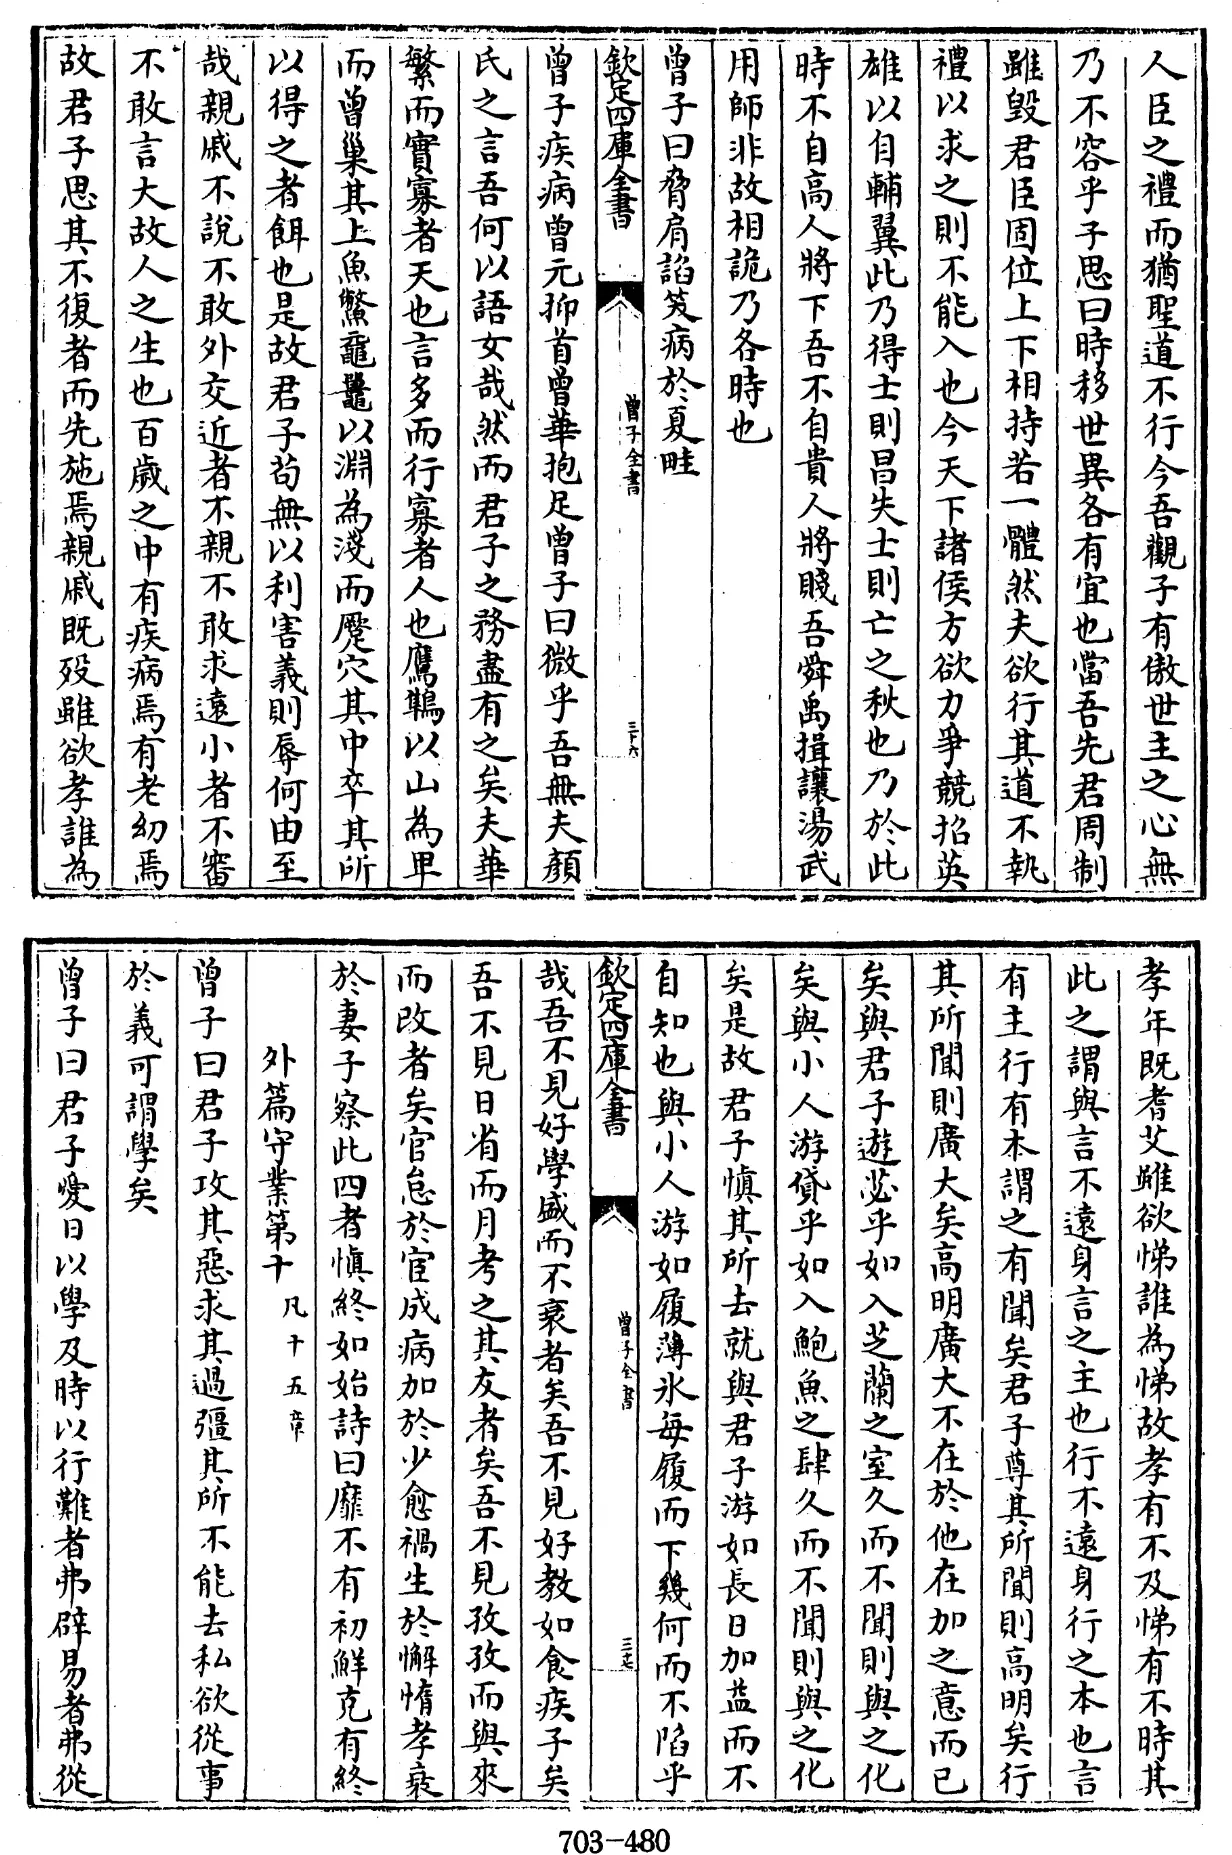 人臣之禮而猶聖道不行今吾觀子有傲世主之心無
乃不容乎子思曰時移世異各有宜也當吾先君周制
雖毀君臣固位上下相持若一體然夫欲行其道不執
禮以求之則不能入也今天下諸侯方欲力爭競招英
雄以自輔翼此乃得士則昌失士則亡之秋也乃於此
時不自高人將下吾不自貴人將賤吾舜禹揖讓湯武
用師非故相詭乃各時也
曾子曰脅肩諂笑病於夏畦
欽定四庫全書
曾子全書
三十六
曾子疾病曾元抑首曾華抱足曾子曰微乎吾無夫顏
氏之言吾何以語女哉然而君子之務盡有之矣夫華
繁而實寡者天也言多而行寡者人也鷹鶽以山為卑
而曾巢其上魚鱉黿鼉以淵為淺而蹷穴其中卒其所
以得之者餌也是故君子苟無以利害義則辱何由至
哉親戚不說不敢外交近者不親不敢求遠小者不審
不敢言大故人之生也百歲之中有疾病焉有老幼焉
故君子思其不復者而先施焉親戚既歿雖欲孝誰為
孝年既耆艾雖欲悌誰為悌故孝有不及悌有不時其
此之謂與言不遠身言之主也行不遠身行之本也言
有主行有本謂之有聞矣君子尊其所聞則高明矣行
其所聞則廣大矣高明廣大不在於他在加之意而已
矣與君子遊苾乎如入芝蘭之室久而不聞則與之化
矣與小人游貸乎如入鮑魚之肆久而不聞則與之化
矣是故君子慎其所去就與君子游如長日加益而不
自知也與小人游如履薄冰每履而下幾何而不陷乎
欽定四庫全書
曾子全書
三十七
哉吾不見好學盛而不衰者矣吾不見好教如食疾子矣
吾不見日省而月考之其友者矣吾不見孜孜而與來
而改者矣官怠於宦成病加於少愈禍生於懈惰孝衰
於妻子察此四者慎終如始詩曰靡不有初鮮克有終
外篇守業第十 凡十五章
曾子曰君子攻其惡求其過彊其所不能去私欲從事
於義可謂學矣
曾子曰君子愛日以學及時以行難者弗辟易者弗從
703-480